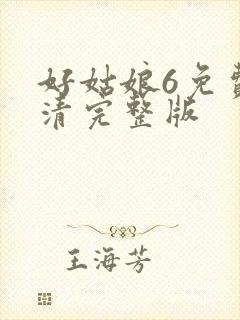 好姑娘6免費
清完整版
王海芳